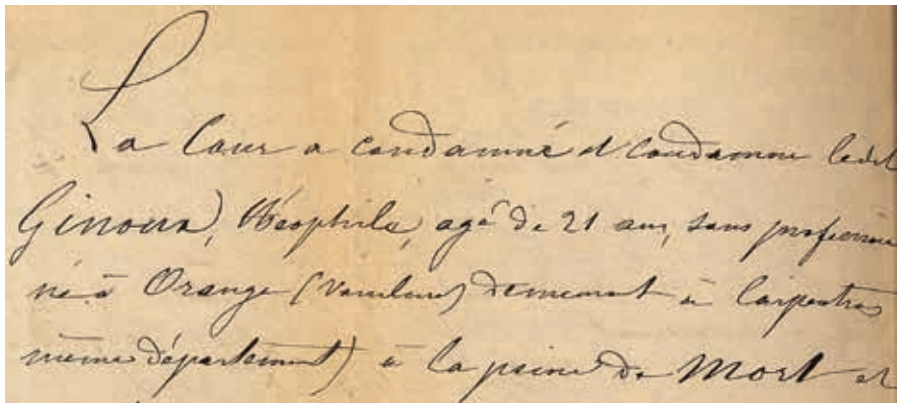 La Cour a condamné et condamne ledit
Ginoux, Théophile, agé de 21 ans, sans profession
né à Orange (Vaucluse) demeurant à Carpentras
même département) à la peine de Mort et